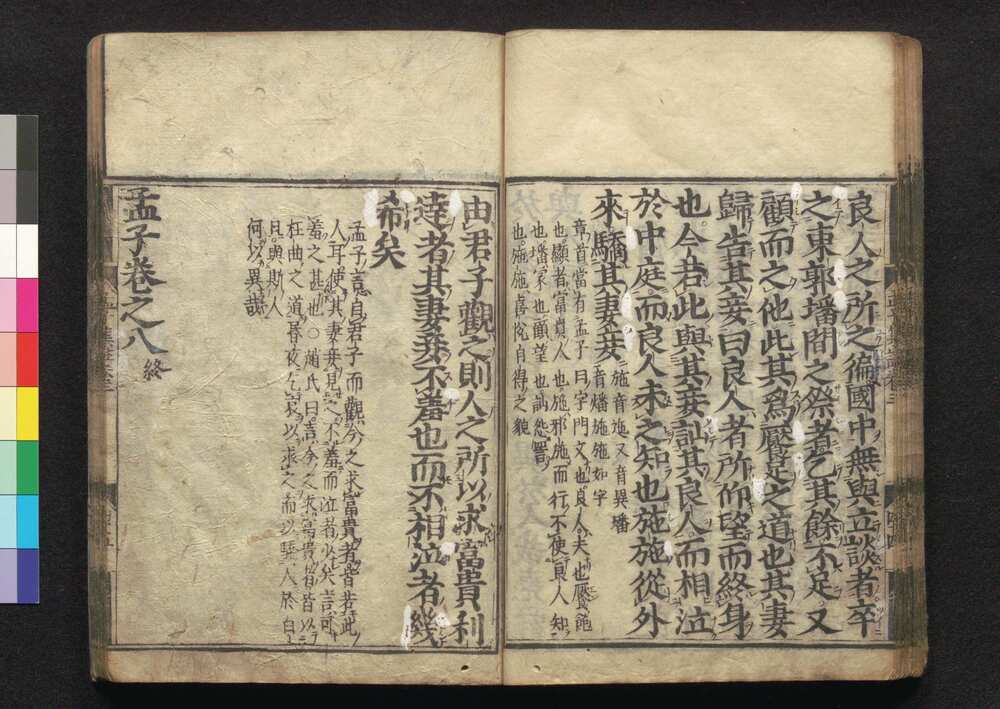 良人之所之徧國中無與立談者卒
之東郭墦間之祭者乞其餘不足又
顧而之他此其爲饜足之道也其妻
歸告其妾曰良人者所仰望而終身
也今若此與其妾訕其良人而相泣
於中庭而良人未之知也施施從外
來驕其妻妾
施音施又音異墦
音燔施施如字
章首當有孟子曰字闕文也良人夫也饜飽
也顯者富貴人也施邪施而行不使良人知
也墦冢也顧望也訕怨詈
也施施喜悅自得之貌
由君子觀之則人之所以求富貴利
達者其妻妾不羞也而不相泣者幾
希矣
孟子言自君子而觀今之求富貴者皆若此
人耳使其妻妾見之不羞而泣者少矣言可
羞之甚也○趙氏曰言今之求富貴者皆以
枉曲之道昏夜乞哀以求之而以驕人於白
日與斯人
何以異哉
孟子卷之八 終